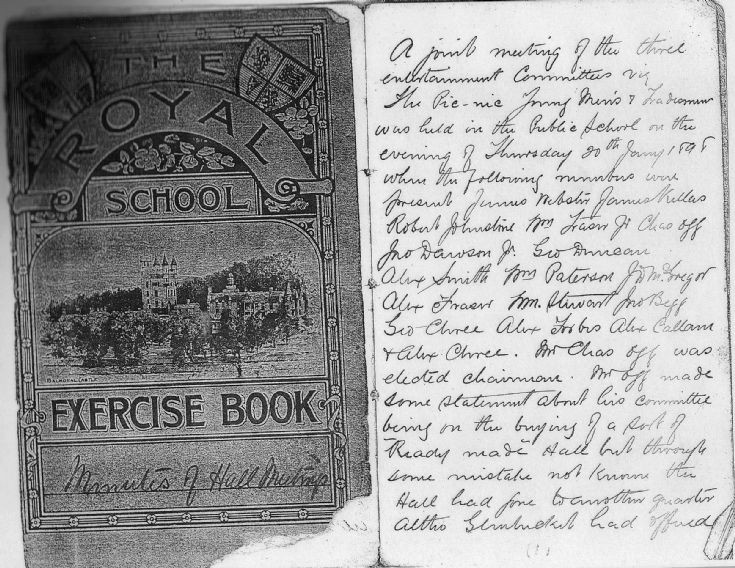 THE
ROYAL
SCHOOL
BALMORAL CASTLE
EXERCISE BOOK
Minutes of Hall Meetings
A joint meeting of the three
entertainment Committees viz
The Pic-nic Young Men's & Tradesmen
was held in the Public School on the
evening of Thursday 20th Jany 1898
when the following members were
present James Webster James Kellas
Robert Johnstone Wm Fraser Jr Chas Off
Jno Dawson Jr. Geo Duncan
Alex Smith Wm Paterson Jn McGregor
Alex Fraser Wm. Stewart Jno Begg
Geo Chree Alex Forbes Alex Callam
& Alex Chree. Mr Chas Off was
elected chairman. Mr Off made
some statement about his committee
being on the buying of a sort of
"Ready made" Hall but through
some mistake not known the
Hall had gone to another quarter
Altho had offered
(1)